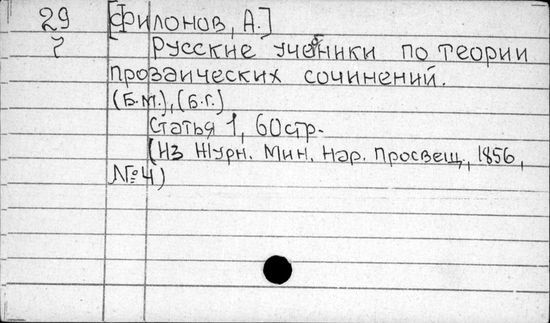 29 [Филонов, А.]
? Русские учебники по теории
прозаических сочинений.
(Б.м.), (Б.г.)
Статья 1, 60 стр.
(Из Журн. Мин. Нар. Просвещ., 1856,
№ 4)